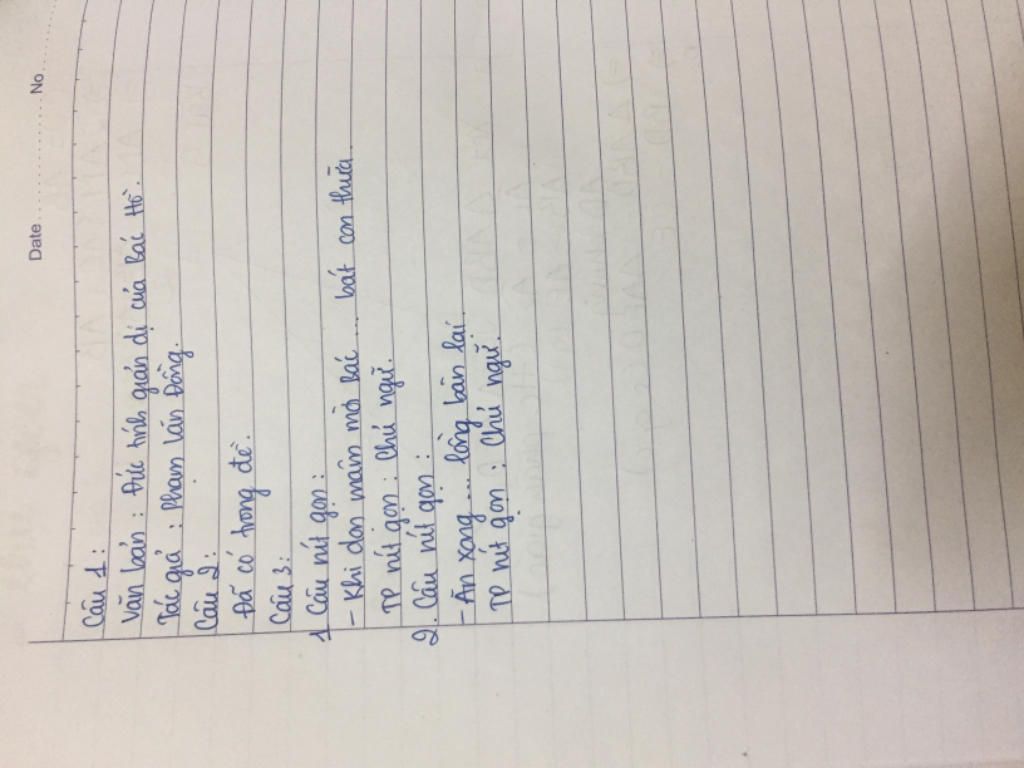 Date ............ No ............
Câu 1:
Văn bản : Đức tính giản dị của Bác Hồ.
Tác giả : Phạm Văn Đồng.
Câu 2:
Đã có trong đề.
Câu 3:
1 Câu rút gọn :
- Khi dọn mâm mời Bác .... bát con thừa.
TP rút gọn : Chủ ngữ.
2. Câu rút gọn :
- Ăn xong ... lồng bàn lại.
TP rút gọn : Chủ ngữ.